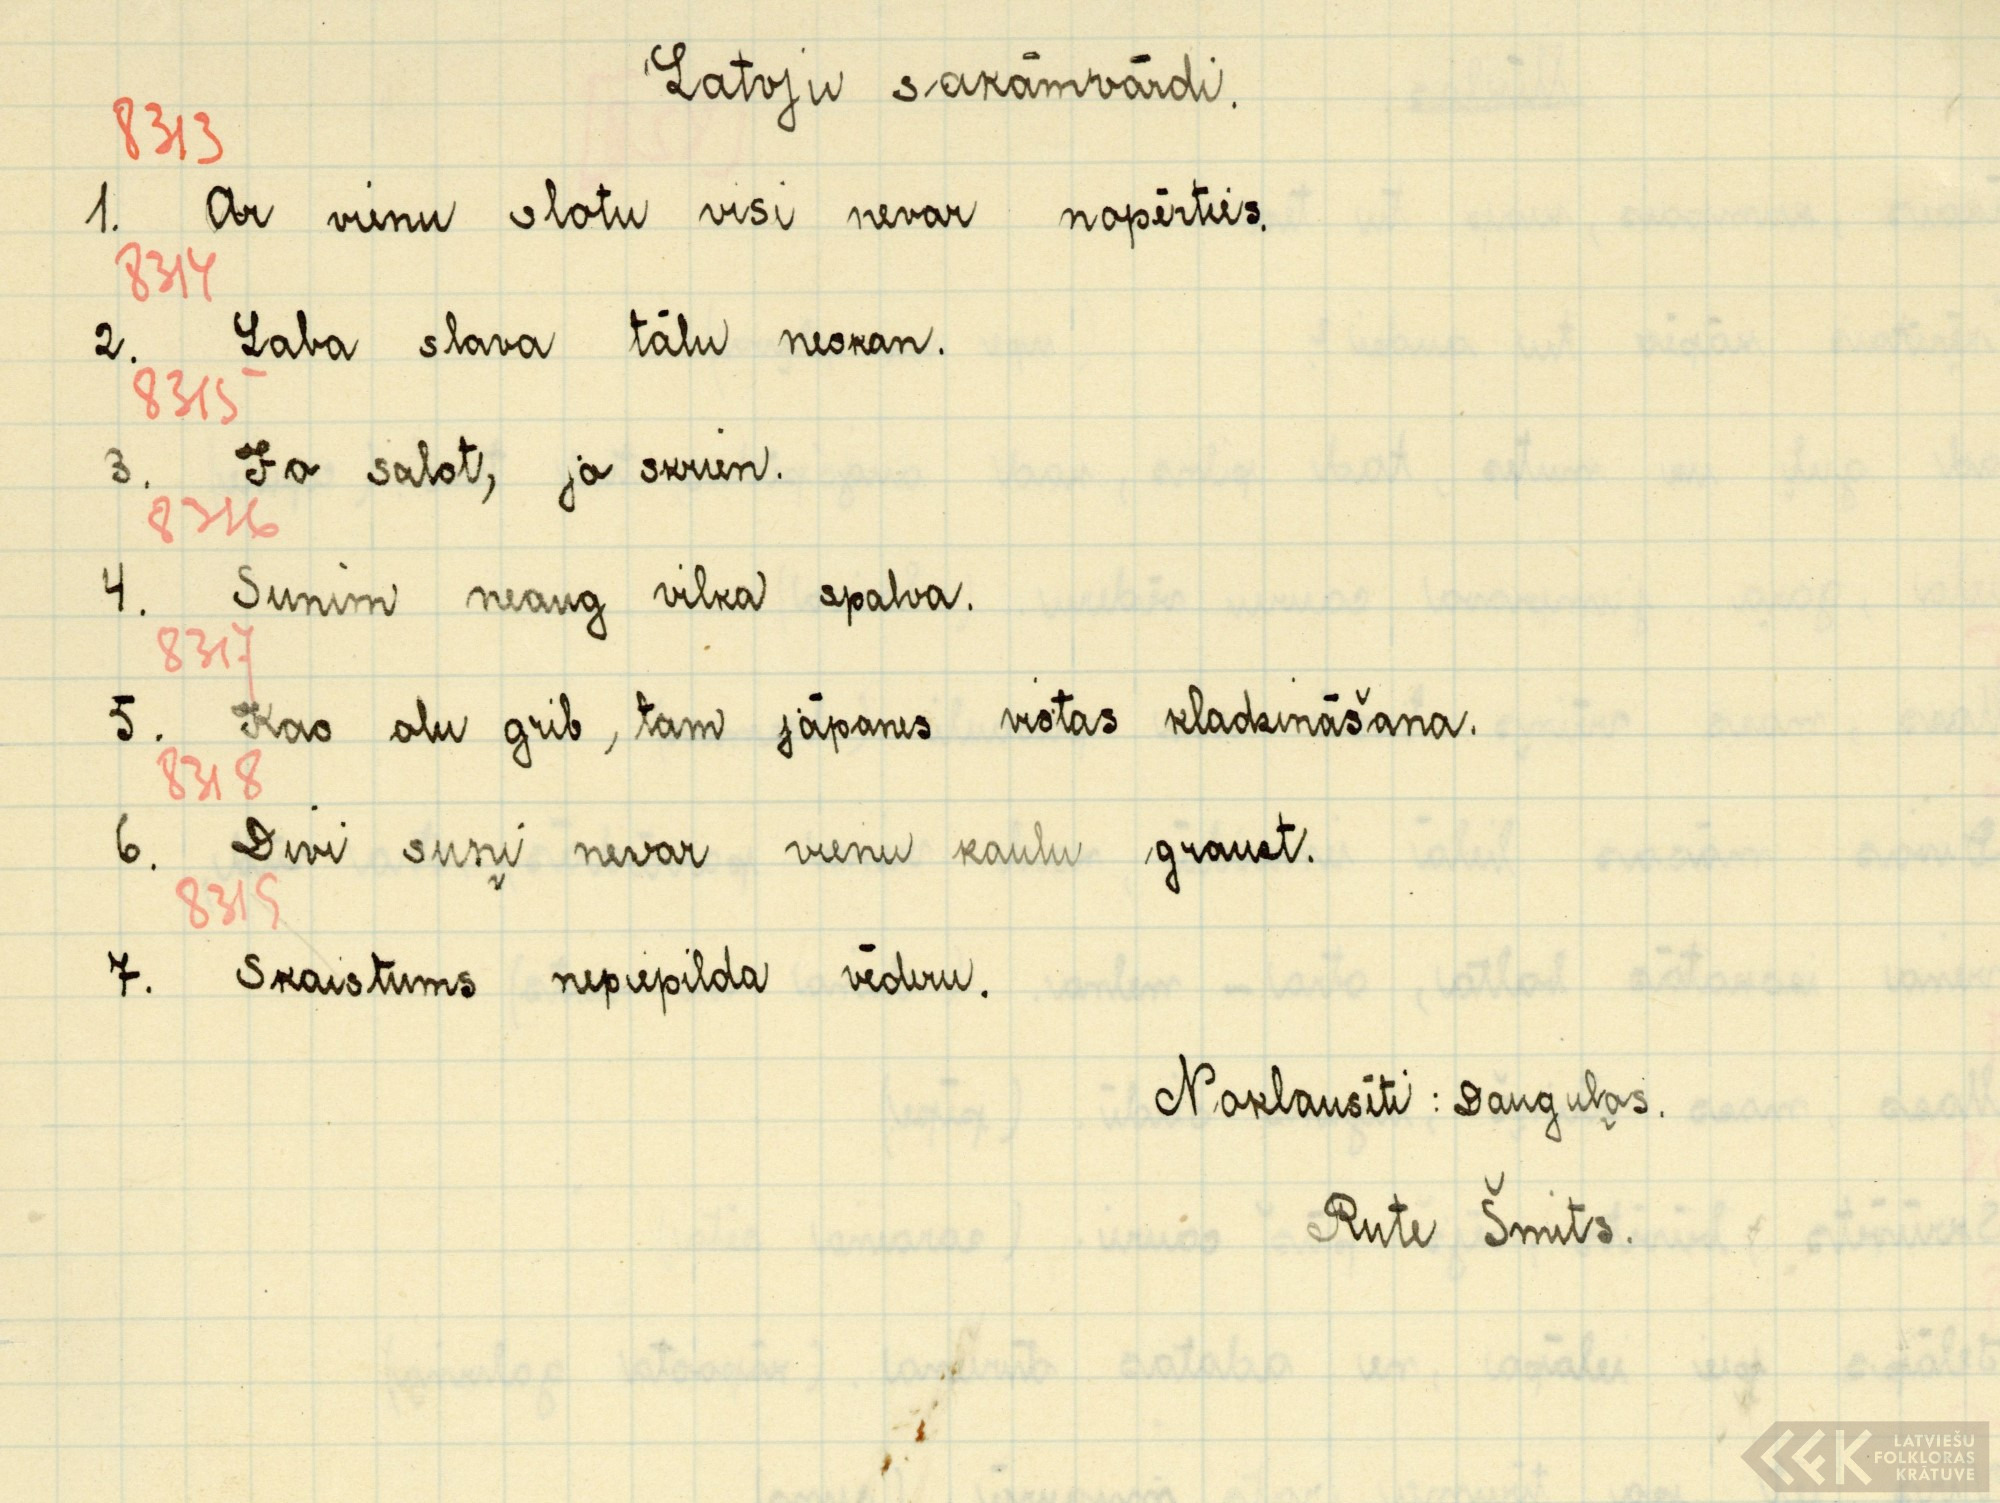 Latvju sakāmvārdi.
8313
1. Ar vienu slotu visi nevar nopērties.
8314
2. Laba slava tālu neskan.
8315
3. Ja salst, ja skrien.
8316
4. Sunim neaug vilka spalva.
8317
5. Kas olu grib, tam jāpanes vistas kladzināšana.
8318
6. Divi suņi nevar vienu kaulu grauzt.
8319
7. Skaistums nepiepilda vēderu.
Noklausīti: Dauguļos.
Rute Šmits.
LATVIEŠU
FOLKLORAS
KRĀTUVE